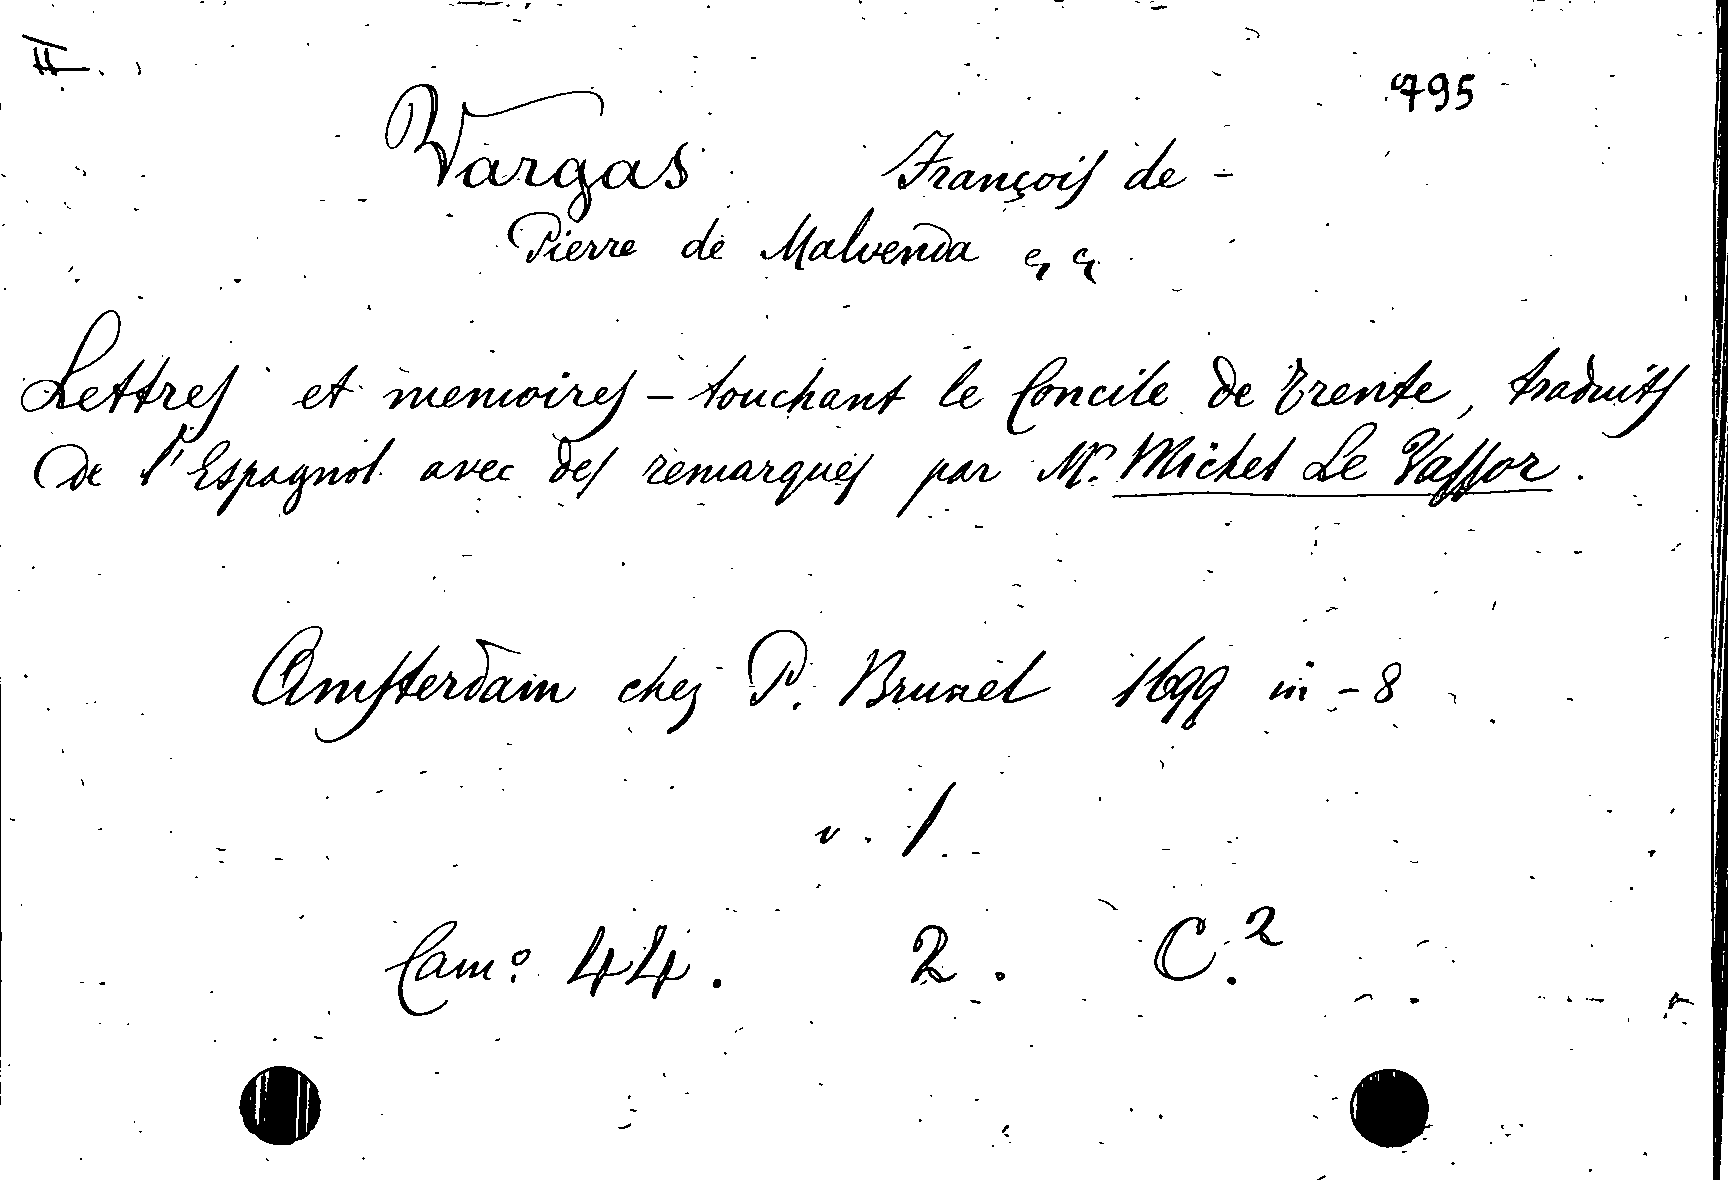 795
Vargas François de -
Pierre de Malvenda
Lettres et memoires - touchant le Concile de Trente, traduits
de l'Espagnol avec des remarques par Mr. Michel Le Vassor.
Amsterdam chez P. Brunel 1699 in-8
v. 1
Camº 44. 2. C.²